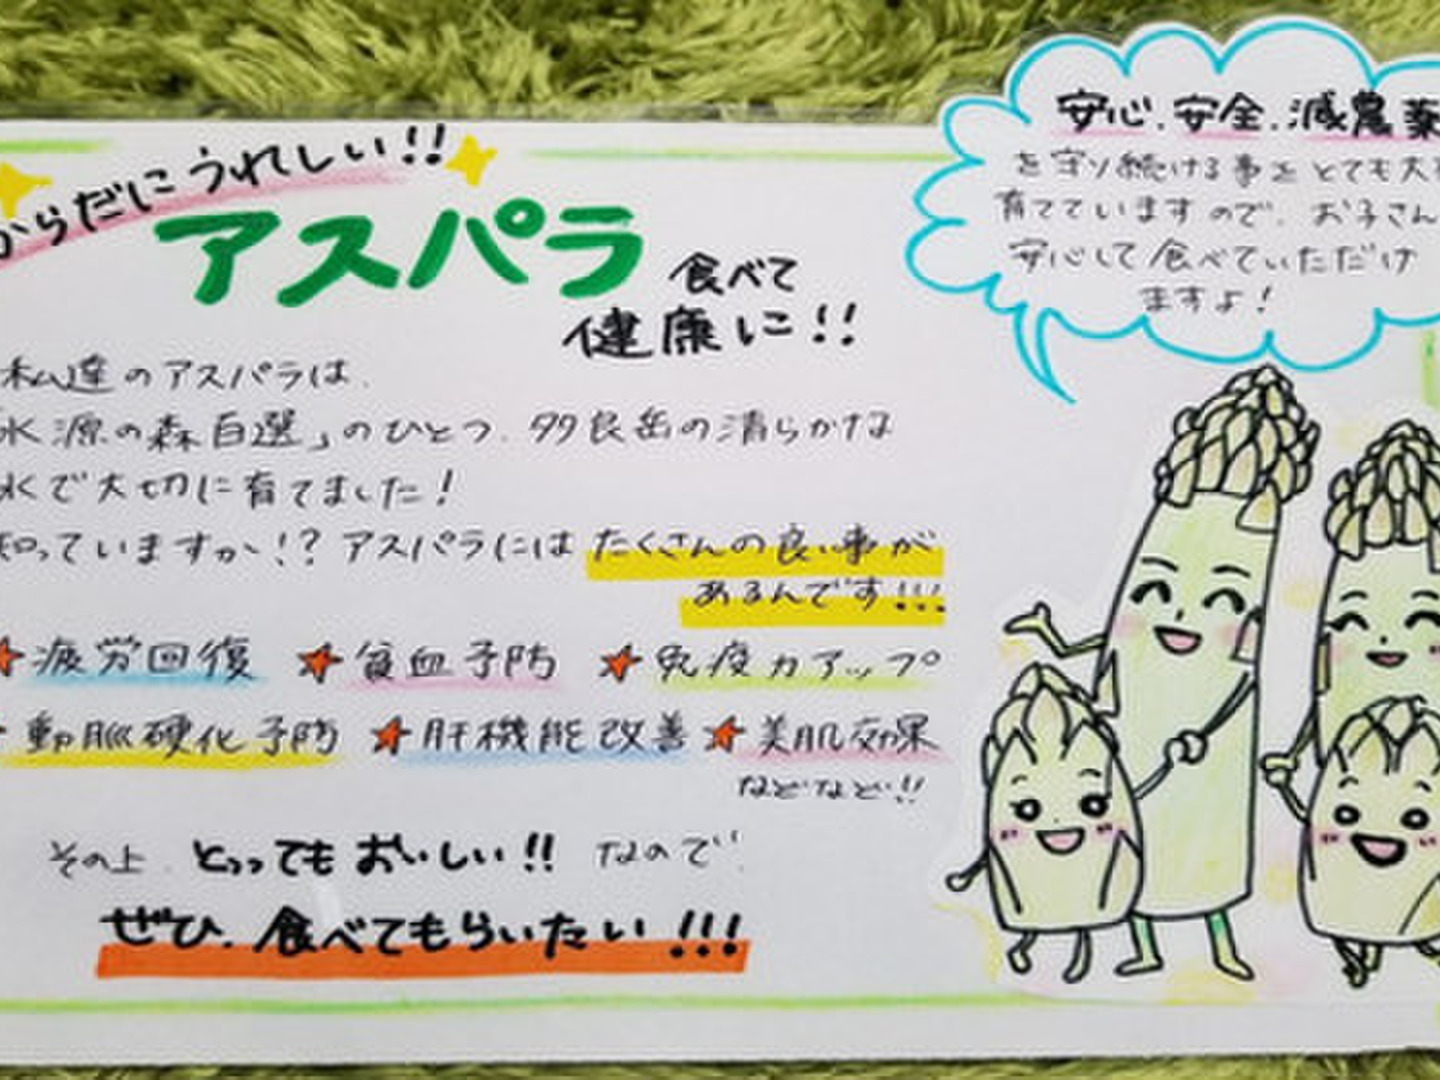 からだにうれしい!!
アスパラ
食べて
健康に!!
私達のアスパラは、
水源の森百選」のひとつ、多良岳の清らかな
水で大切に育てました!
知っていますか!? アスパラには たくさんの良い事が
あるんです!!!
疲労回復 貧血予防 免疫力アップ
動脈硬化予防 肝機能改善 美肌効果
などなど!!
その上、とってもおいしい!! なので、
ぜひ、食べてもらいたい!!!
安心、安全、減農薬
を守り続ける事をとても大
育てていますので、お子さん
安心して食べていただけ
ますよ!